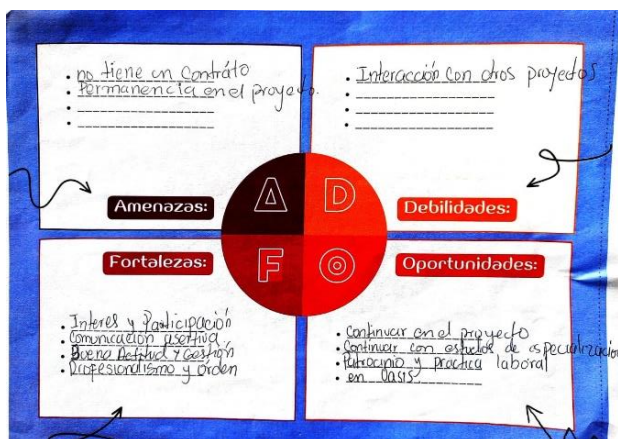 • no tiene un Contráto
• Permanencia en el proyecto.
Amenazas:
• Interacción con otros proyectos
Debilidades:
A D
F O
Fortalezas:
• Interes y Participación
• Comunicación asertiva
• Buena Actitud y Gestión
• Profesionalismo y orden
Oportunidades:
• Continuar en el proyecto
• Continuar con estudios de especialización
• Patrocinio y practica laboral
• en Oasis